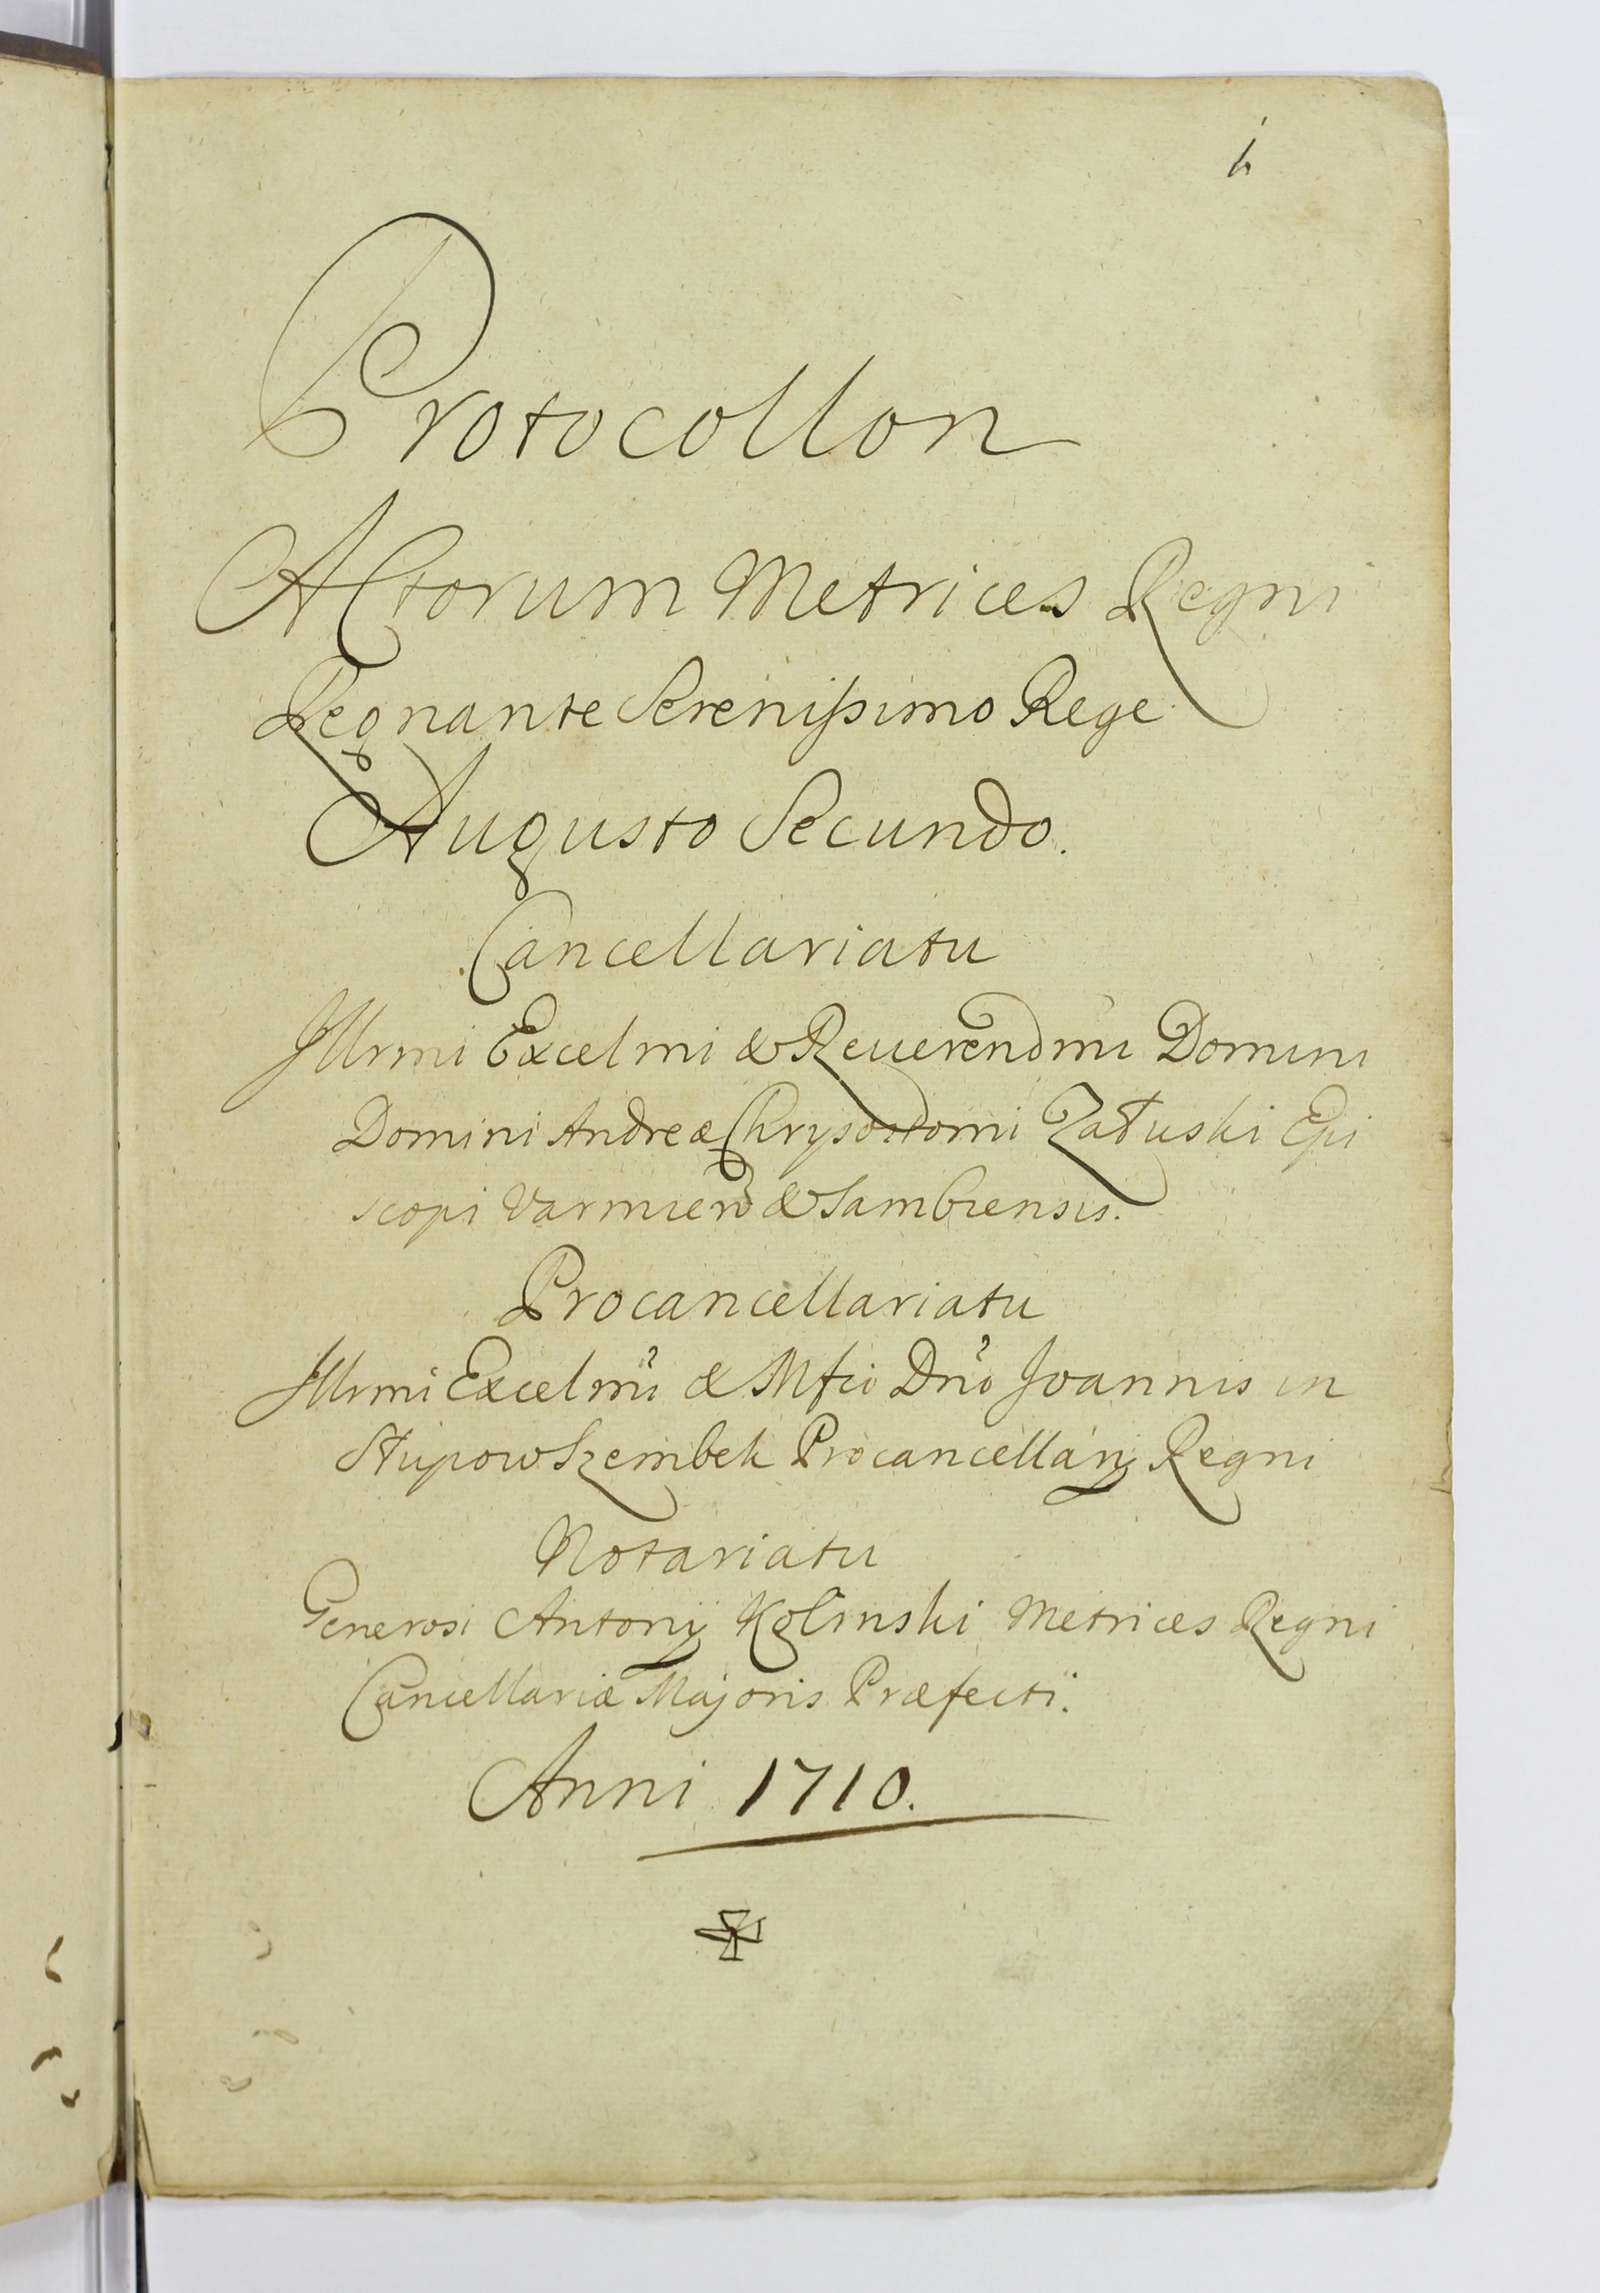 1
Protocollon
Actorum Metrices Regni
Regnante Serenissimo Rege
Augusto Secundo.
Cancellariatu
Illrmi Excelmi & Reuerendmi Domini
Domini Andreæ Chrysostomi Załuski Epi
scopi Varmien & Sambiensis.
Procancellariatu
Illrmi Excelmi & Mfci Dni Joannis in
Słupow Szembek Procancellarij Regni
Notariatu
Generosi Antonij Kolinski Metrices Regni
Cancellariæ Majoris Præfecti.
Anni 1710.